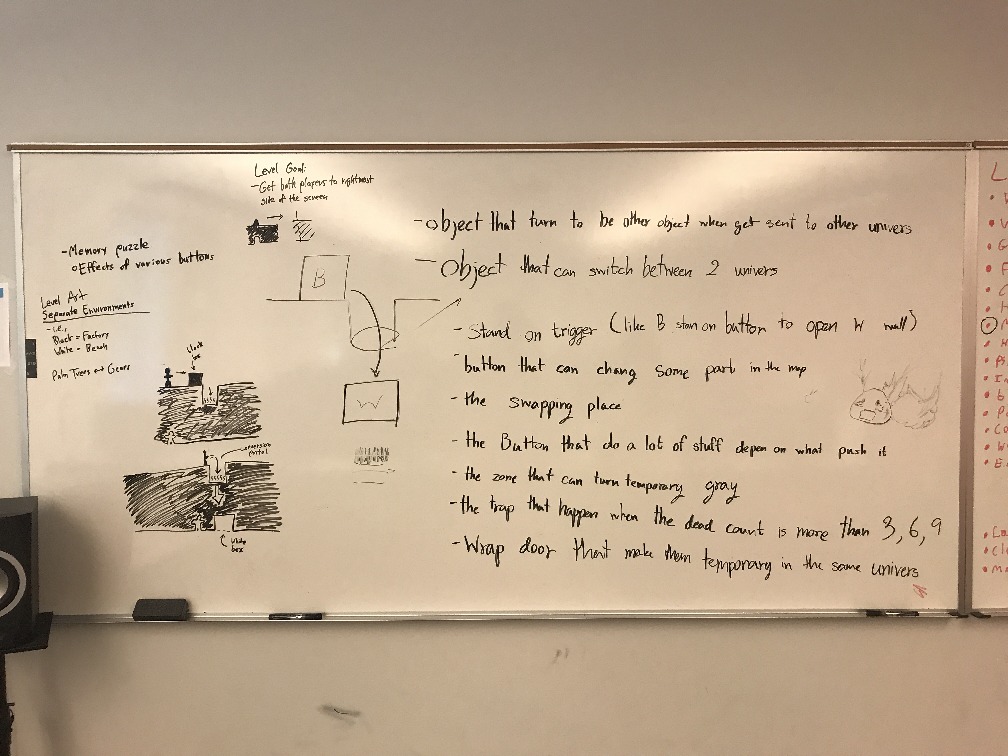 Level Goal:
- Get both players to rightmost
side of the screen
- Memory puzzle
o Effects of various buttons
Level Art
Separate Environments
- i.e.,
Black = Factory
White = Beach
Palm Trees ↔ Gears
black
box
inversion
portal
white
box
B
W
- object that turn to be other object when get sent to other univers
- Object that can switch between 2 univers
- Stand on trigger (like B stan on button to open W wall)
- button that can chang some part in the map
- the swapping place
- the Button that do a lot of stuff depen on what push it
- the zone that can turn temporary gray
- the trap that happen when the dead count is more than 3, 6, 9
- Wrap door that make them temporary in the same univers